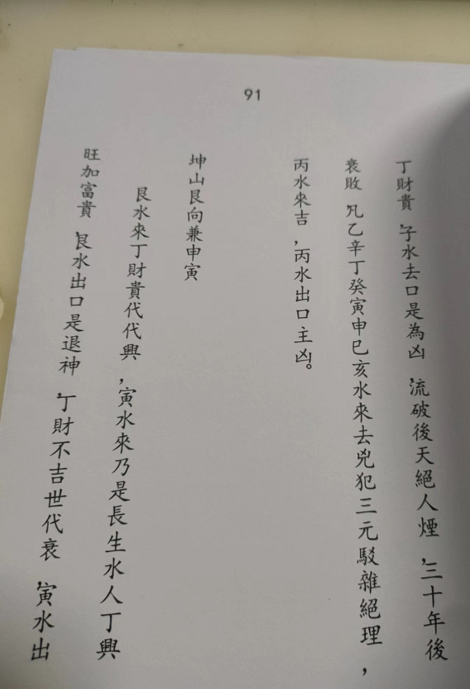 91
丁財貴，子水去口是為凶，流破後天絕人煙，三十年後
衰敗，凡乙辛丁癸寅申巳亥水來去兇犯三元駁雜絕理，
丙水來吉，丙水出口主凶。
坤山艮向兼申寅
艮水來丁財貴代代興，寅水來乃是長生水人丁興
旺加富貴，艮水出口是退神，丁財不吉世代衰，寅水出